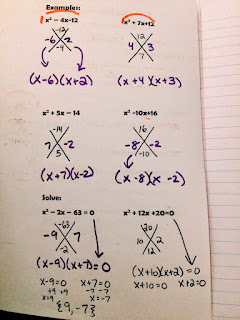 Examples:
x² - 4x-12
-12
-6 2
-4
(x-6)(x+2)
x² + 7x+12
12
4 3
7
(x+4)(x+3)
x² + 5x - 14
-14
7 -2
5
(x+7)(x-2)
x² -10x+16
16
-8 -2
-10
(x-8)(x-2)
Solve:
x² - 2x - 63 = 0
-63
-9 7
-2
(x-9)(x+7)=0
x-9=0 x+7=0
+9 +9 -7 -7
x=9 x=-7
{9,-7}
x² + 12x +20=0
20
10 2
12
(x+10)(x+2)=0
x+10=0 x+2=0